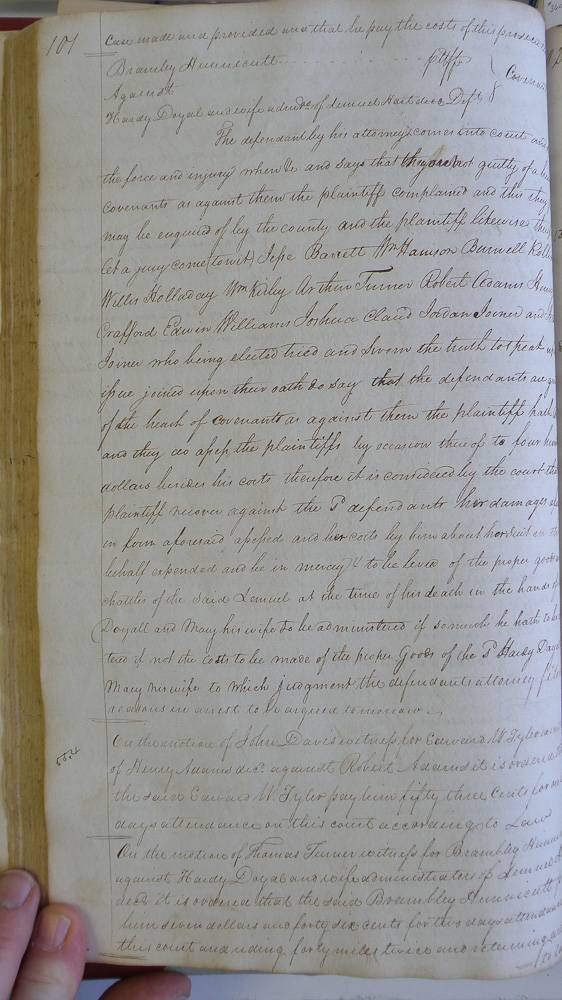 101
Case made and provided and that he pay the costs of this prosecu
Brambley Hunnicutt pltff
Against Covenant
Hardy Doyal and wife admrs of Lemuel Hart decd Defts
The defendant by his attorney comes into court and
the force and injury when &c and says that they are not guilty of
covenants as against them the plaintiff complained and this they
may be enquired of by the county and the plaintiff likewise
let a jury come (to wit) Jesse Barrett Wm Harrison Burwell
Willis Holladay Wm Kirby Arthur Turner Robert Adams
Crafford Edwin Williams Joshua Claud Jordan Joiner and
Joiner who being elected tried and sworn the truth to speak
issue joined upon their oath do say that the defendants are
of the breach of covenants as against them the plaintiff hath
and they do assess the plaintiffs by occasion thereof to four
dollars besides his costs therefore it is considered by the court
plaintiff recover against the defendants her damages
in form aforesaid assessed and her costs by him about her suit in
behalf expended and be in mercy &c to be levied of the proper goods
chattles of the said Lemuel at the time of his death in the hands
Doyall and Mary his wife to be administered if so much he hath to
tred if not the costs to be made of the proper Goods of the Hardy
Mary his wife to which judgment the defendants attorney
reasons in arrest to be argued tomorrow
554
On the motion of John Davis witness for Edward W. Tyler
of Henry Adams decd against Robert Adams it is ordered
the said Edward W. Tyler pay him fifty three Cents for
days attendance on this court according to Law
On the motion of Thomas Turner witness for Brambley
against Hardy Doyal and wife administrators of Lemuel
decd it is ordered that the said Brambley Hunnicutt
him seven dollars and forty six cents for two days attendance
this court and riding forty miles twice and returning